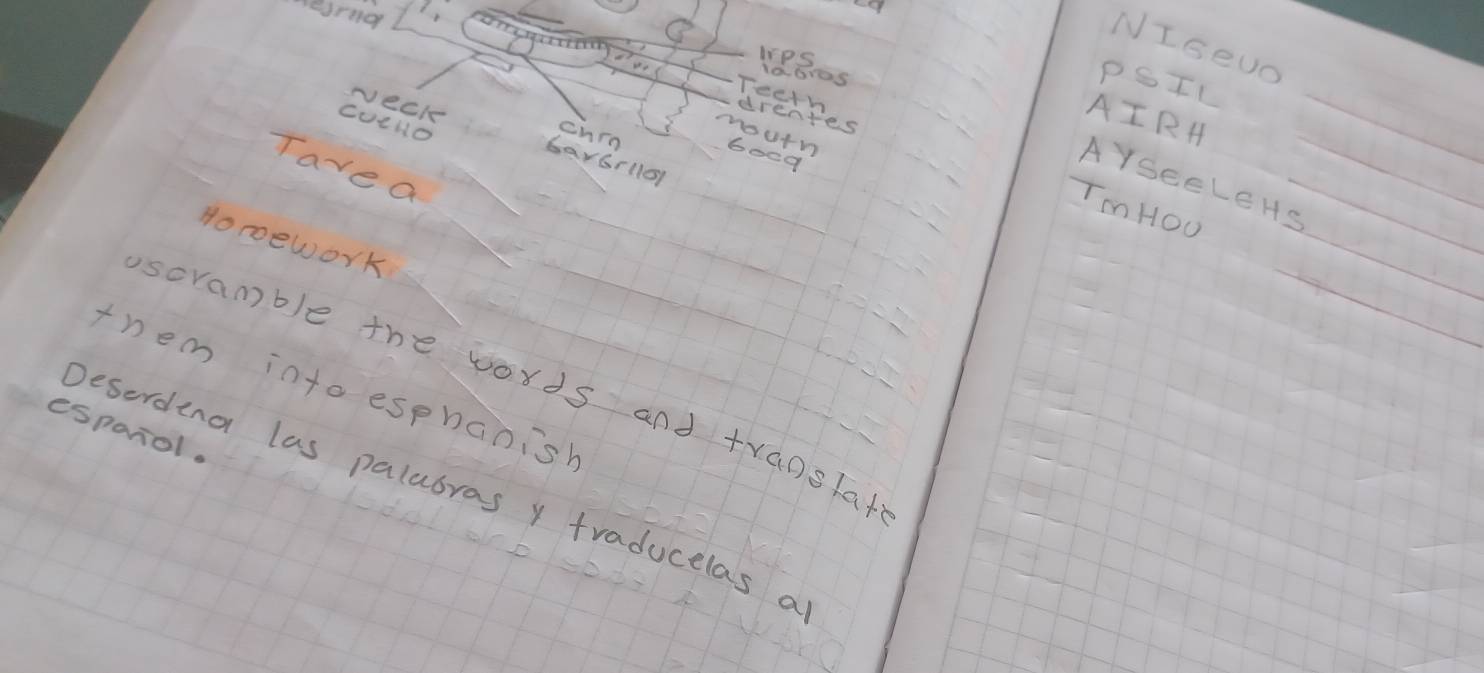 lips
labios
Teeth
drentes
mouth
boca
Neck
cuello
chin
barbrlla
Tarea
Homework
uscramble the words and translate
them into esphanish
Desordena las palabras y traducelas al
español.
NIGeUO
PSIL
AIRH
AYSeeLeHS
TmHOU